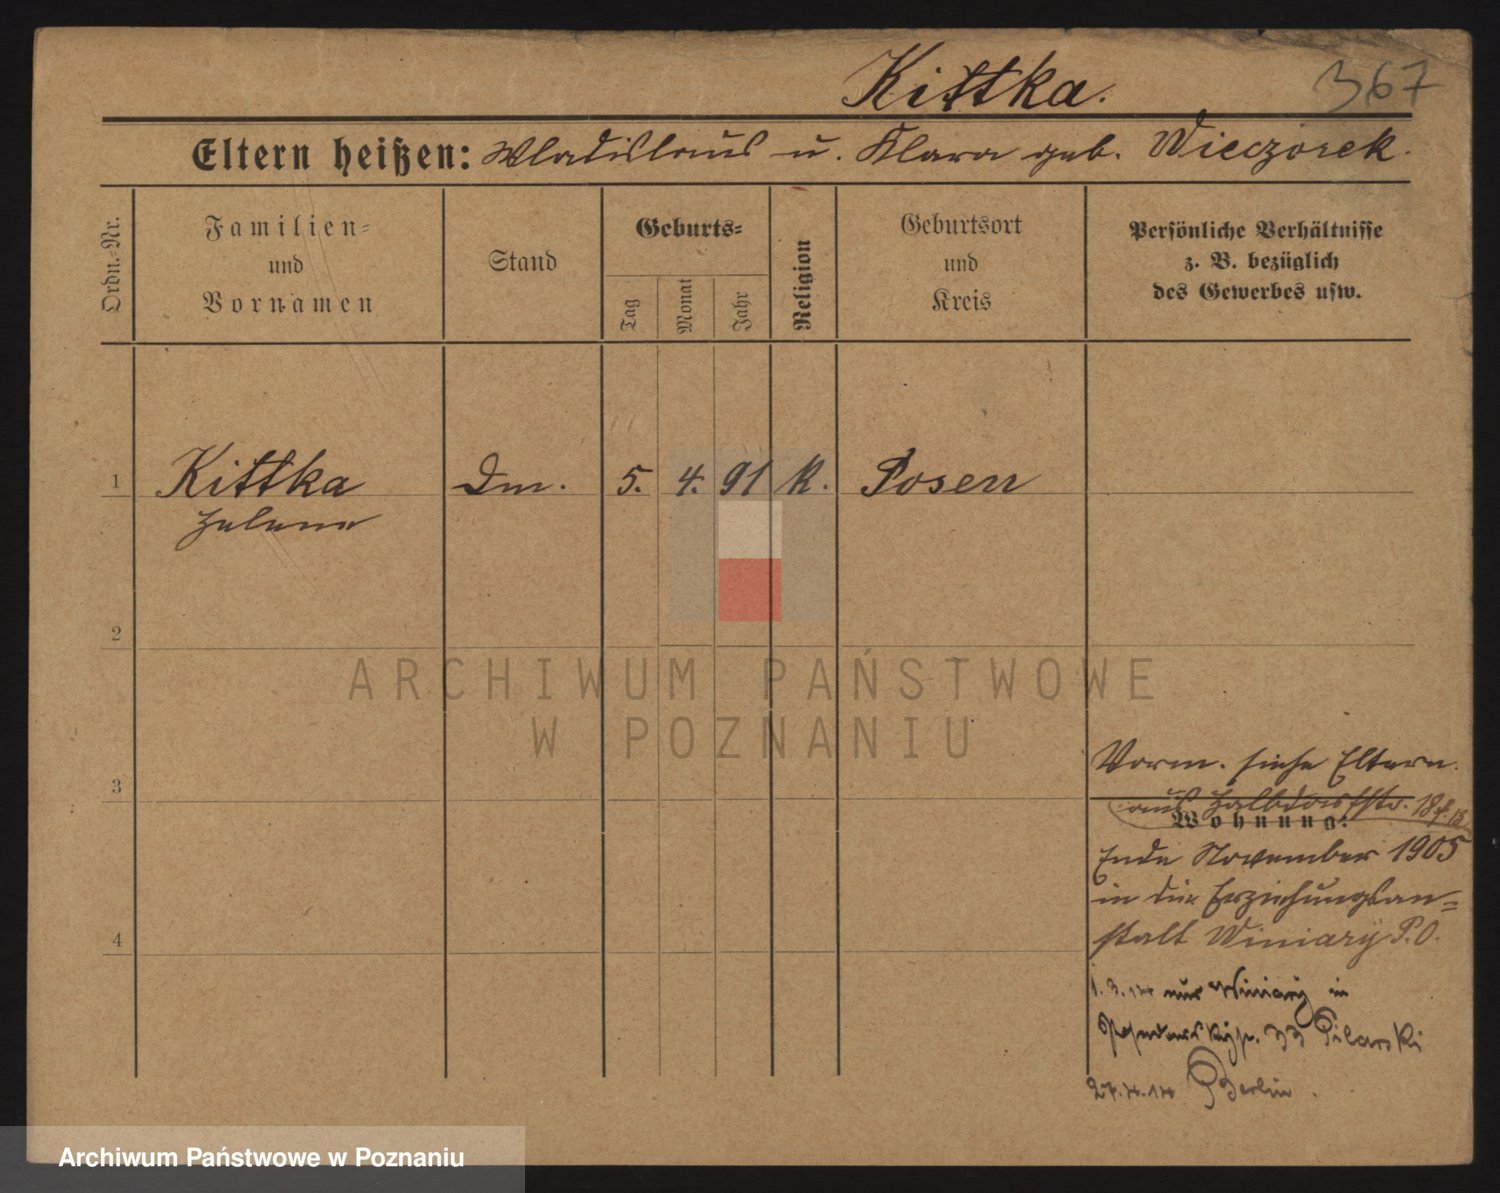 Kittka.
367
Eltern heißen: Wladislaus u. Klara geb. Wieczorek.
Ordn.-Nr.
Familien-
und
Vornamen
Stand
Geburts-
Tag
Monat
Jahr
Religion
Geburtsort
und
Kreis
Persönliche Verhältnisse
z. B. bezüglich
des Gewerbes usw.
1 Kittka Dm. 5. 4. 91 K. Posen
Helene
2
ARCHIWUM PAŃSTWOWE
W POZNANIU
Vorm. siehe Eltern.
3
aus Halbdorfstr. 18
Wohnung:
Ende November 1905
in die Erziehungsan=
stalt Winiary P.O.
4
1.3.14 aus Winiary in
33 Pilarski
27.4.14 Berlin.
Archiwum Państwowe w Poznaniu